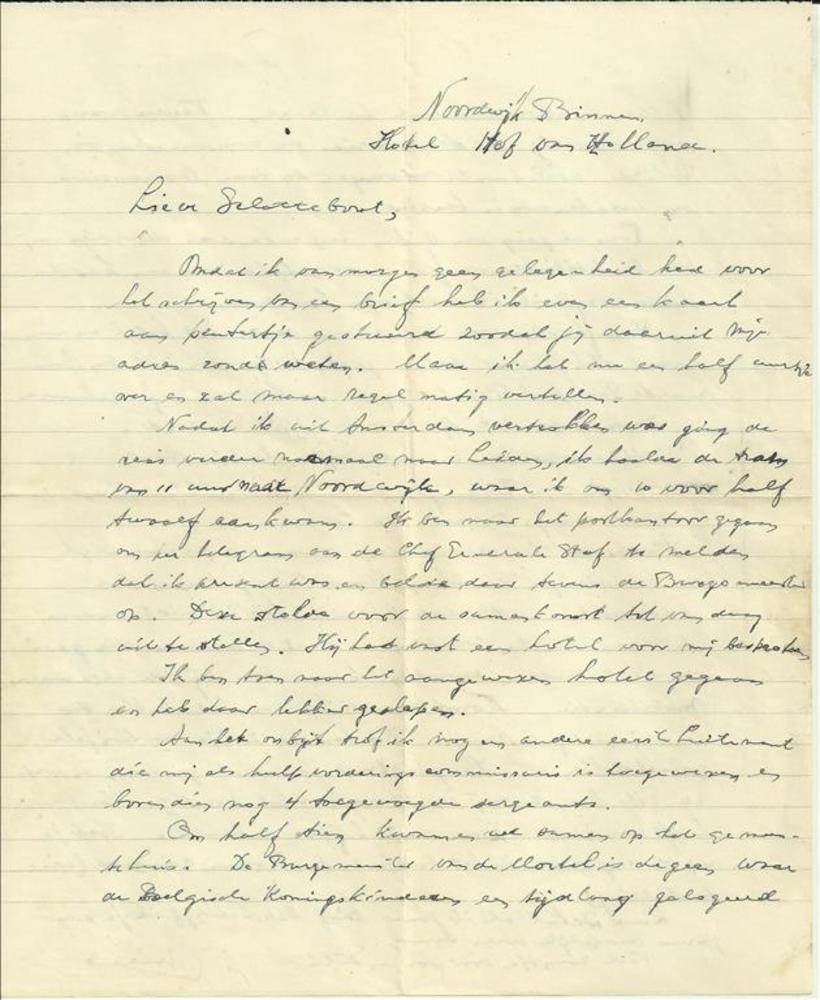 Noordwijk Binnen.
Hotel Hof van Holland.
Lieve
Omdat ik van morgen geen gelegenheid had voor
het schrijven van een brief heb ik even een kaart
aan pentertje gestuurd zoodat jij daaruit mijn
adres zonde weten. Maar ik heb nu een half uurtje
over en zal maar regelmatig vertellen.
Nadat ik uit Amsterdam vertrokken was ging de
reis verder normaal naar Leiden, ik haalde de tram
van 11 uur naar Noordwijk, waar ik om 10 voor half
twaalf aankwam. Ik ben naar het postkantoor gegaan
om per telegram aan de Chef Generale Staf te melden
dat ik present was en belde daar tevens de Burgemeester
op. Deze stelde voor de samenkomst tot vandaag
uit te stellen. Hij had vast een hotel voor mij besproken
Ik ben toen naar het aangewezen hotel gegaan
en heb daar lekker geslapen.
Aan het onbijt trof ik nog een andere eerste luitenant
die mij als hulp vorderings commissaris is toegewezen en
bovendien nog 4 toegevoegde sergeants.
Om half tien kwamen we samen op het gemeen-
tehuis. De Burgemeester van de Mortel is degeen waar
de Belgische Koningskinderen een tijdlang gelogeerd